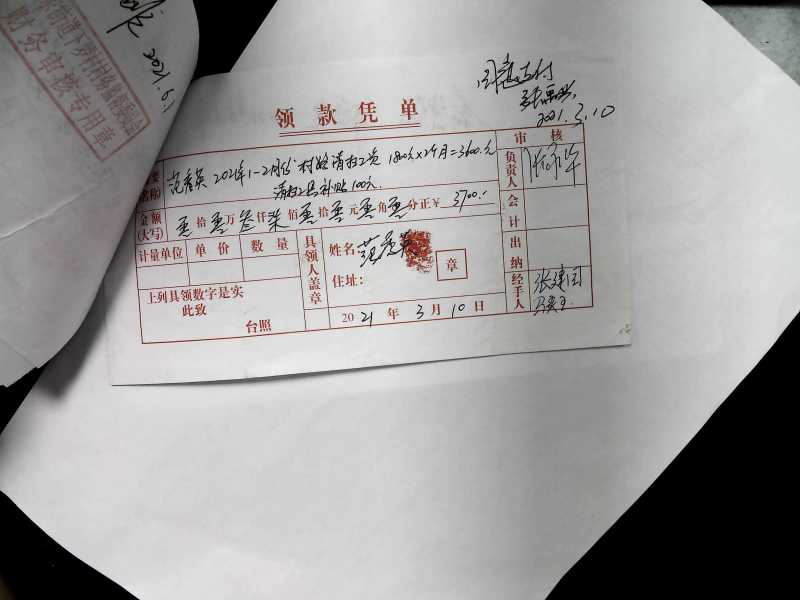 2021.6.1
财务审核专用章
同意支付
2021.3.10
领款凭单
审核
摘要
(名称)
范秀英 2021年1-2月份 村路清扫工资 1800元×2个月=3600.元
清扫工具补贴100元.
负责人
金额
(大写)
零拾零万叁仟柒佰零拾零元零角零分正¥ 3700.-
会计
计量单位 单价 数量
具领人盖章
姓名: 范秀英
住址:
章
出纳
上列具领数字是实
此致
台照
2021年3月10日
经手人
张建国